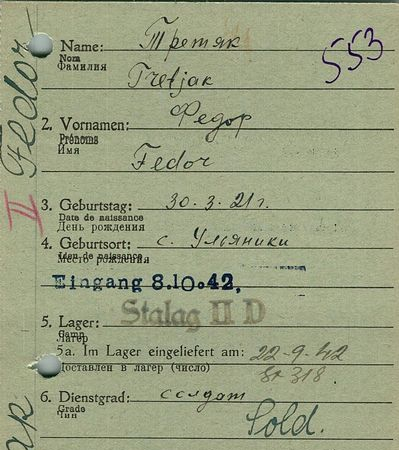 553
Name: Третяк
Nom
Фамилия
Tretjak
2. Vornamen: Федор
Prénoms
Имя
Fedor
3. Geburtstag: 30.3.21 г.
Date de naissance
День рождения
4. Geburtsort: с. Ульяники
Lieu de naissance
Место рождения
Eingang 8.10.42,
5. Lager: Stalag II D
Camp
Лагер
5a. Im Lager eingeliefert am: 22-9-42
Доставлен в лагер (число) St 318
6. Dienstgrad: солдат
Grade
Чин
Sold.
II Fedor
ak